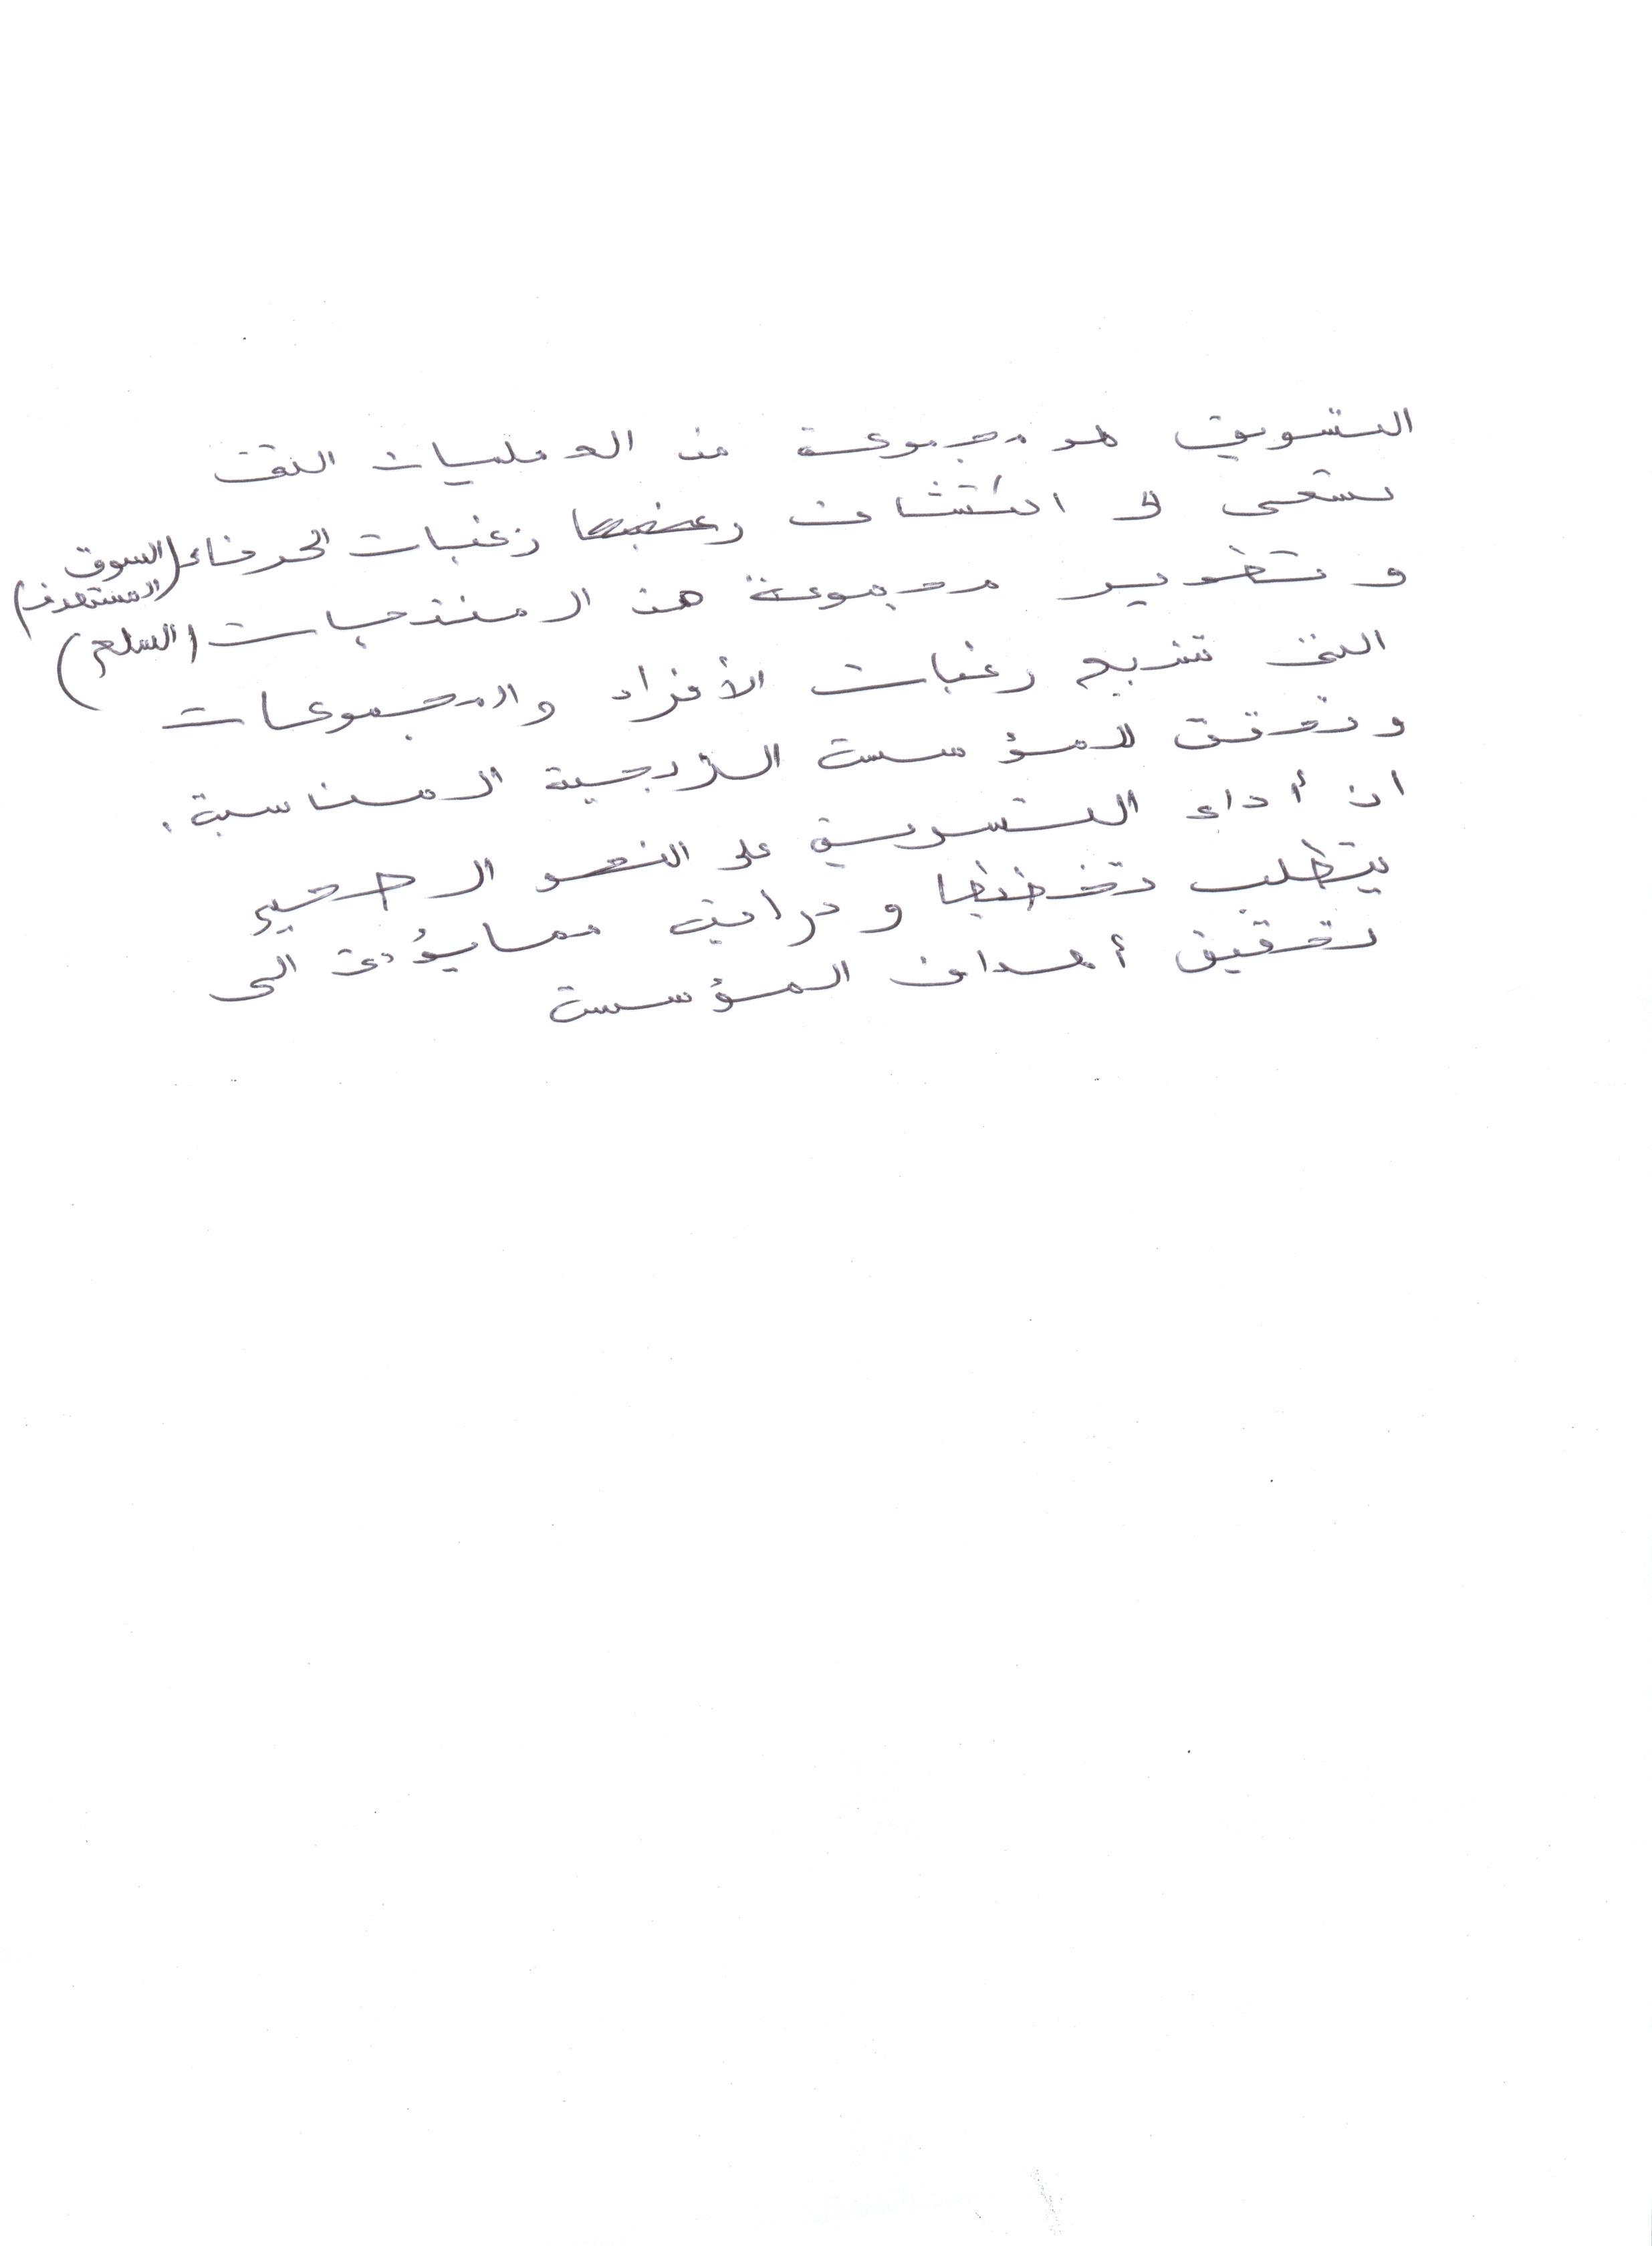 التسويق هو مجموعة من العمليات التي
تسعى الى اكتشاف رغبات الحرفاء (السوق
المستهدف)
و تطوير مجموعة من المنتجات (السلع)
التي تشبع رغبات الأفراد والمجموعات
وتحقق للمؤسسة الربحية المناسبة.
ان أداء التسويق على النحو الصحيح
يتطلب تخطيطا ودراية مما يؤدي الى
تحقيق أهداف المؤسسة